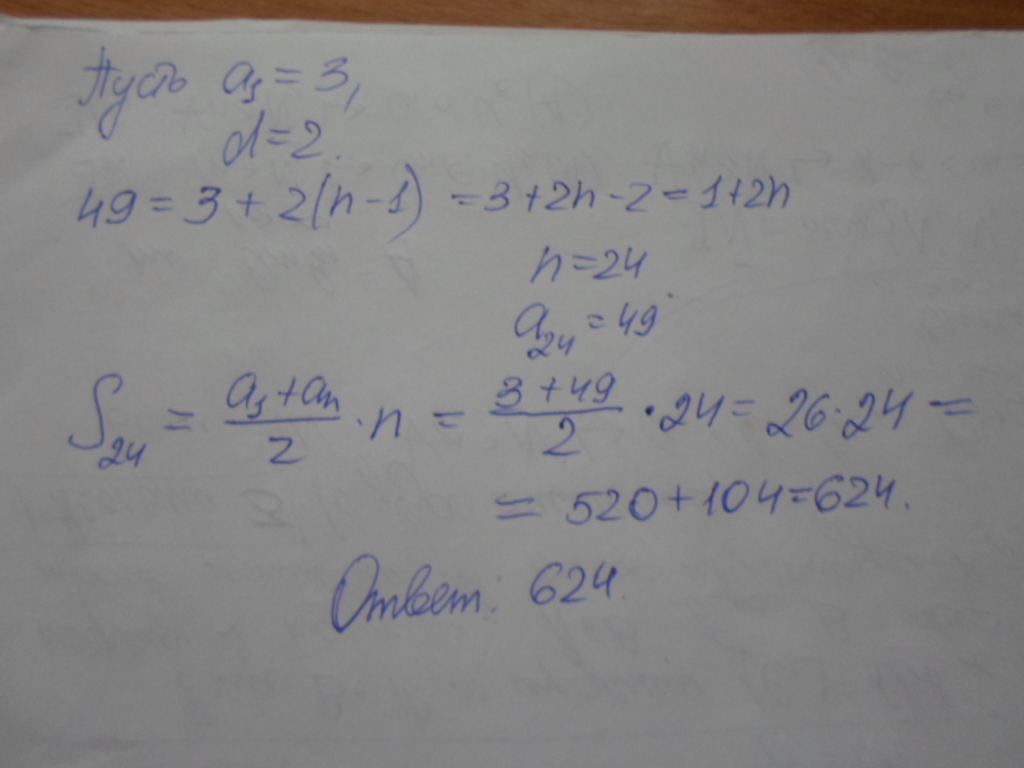 Пусть a₁ = 3,
d = 2.
49 = 3 + 2(n - 1) = 3 + 2n - 2 = 1 + 2n
n = 24
a₂₄ = 49
S₂₄ = (a₁ + aₙ)/2 · n = (3 + 49)/2 · 24 = 26 · 24 =
= 520 + 104 = 624.
Ответ: 624.